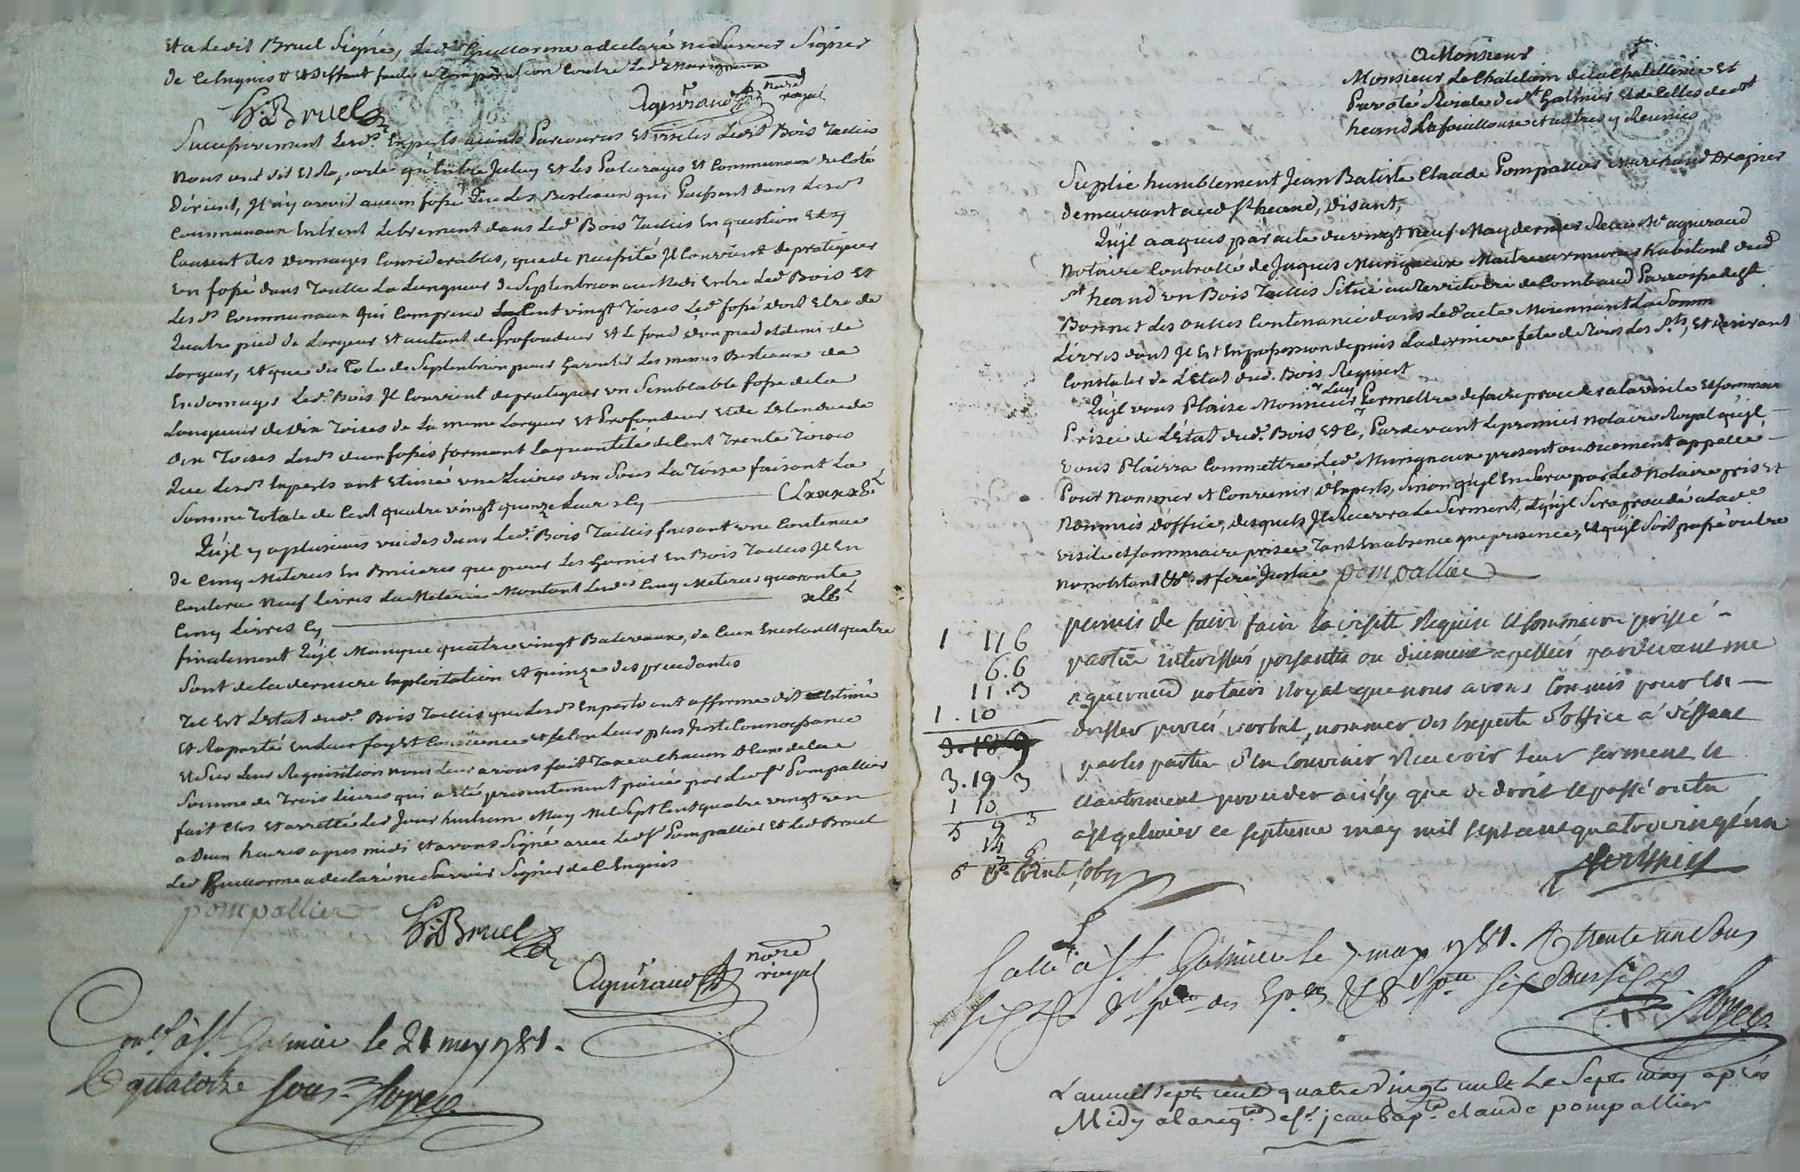 et a ledit Bruel signé, led. Guillorme a declaré ne savoir signer
de ce enquis et deffaut faute de comparution contre led. Murigneux
Bruel Aguiraud nore royal
Successivement lesd. Experts aiants parcourus et visités ledit Bois Taillis
nous ont dit et raporté qu'entre Iceluy et les paturages et communaux de coté
d'orient, Il n'y avoit aucun fossé que les Bestiaux qui paissent dans lesds
communaux entrent librement dans led. Bois Taillis en question et y
causent des domages considerables, que de necessité Il convient de pratiquer
un fossé dans toutte la longueur de septentrion au midi entre led. Bois et
lesds communaux qui comprend cent vingt Toises led. fossé doit etre de
quatre pied de largeur et autant de profondeur et le fond d'un pied et demi de
largeur, et que du coté de septentrion pour garentir les memes Bestiaux de
endomager led. Bois Il convient de pratiquer un semblable fossé de la
longueur de dix Toises de la meme largeur et profondeur et de l'etendue de
dix Toises lesds deux fossés formant la quantité de cent trente Toises
que lesds Experts ont estimé une livre dix sous la Toise faisant la
somme totale de cent quatre vingt quinze livres cy CLxxxxv l
Qu'il y a plusieurs vuides dans led. Bois Taillis faisant une contenue
de cinq Meterées en Bruieres que pour les garnir en Bois Taillis Il en
coutera neuf livres la Meterée Montant lesds cinq Meterées quarante
cinq livres cy xLv l
finalement qu'il manque quatre vingt Baliveaux, de ceux existants quatre
sont de la derniere exploitation et quinze des precedantes
Tel est l'etat dud. Bois Taillis que lesds Experts ont affirmé dit estimé
et raporté en leur foy et conscience et selon leur plus juste connoissance
et sur leur requisition nous leur avons fait taxe a chacun d'eux de la
somme de trois livres qui a été presentement paiée par led. sr Pompallier
fait clos et arretté led. jour huitieme May mil sept cent quatre vingt un
a deux heures apres midi et avons signé avec led. sr Pompallier et led. Bruel
led Guillorme a declaré ne savoir signer de ce enquis
pompallier
Bruel
Aguiraud nore royal
Conlé a St. Galmier le 21 may 1781.
R quatorze sous.
A Monsieur
Monsieur Le Chatelain de la Chatellenie et
Prevoté Roiale de st Galmier et de celles de st
heand Lafouillouse et autres y Reunies
Suplie humblement Jean Batiste Claude Pompallier marchand Drapier
demeurant aud St heand, disant,
Qu'il a aquis par acte du vingt neuf May dernier Recu Me aguiraud
notaire Controllé de Jaques Murigneux Maitre armurier habitant dud
st heand un Bois Taillis situé au Territoire de Combaud Parroisse de st
Bonnet des oulles contenance dans led. acte Moiennant la somme
livres dont Il est en possession depuis la derniere fete de Tous les Sts, et desirant
constater de l'etat dud. Bois Requiert
Qu'il vous Plaise Monsieur luy Permettre de faire proceder a la visite et sommaire
Prisée de l'etat dud. Bois et ce, Pardevant le premier notaire Royal qu'il
vous Plairra commettre led. Murigneux present ou duement appellé
Pour nommer et convenir d'Experts, sinon qu'il en sera par led Notaire pris et
nommés d'office, desquels Il recevra le serment, et qu'il sera procedé a lade
visite et sommaire prisée tant en absence que presence, et qu'il soit passé outre
nonobstant &c. et feréz Justice pompallier
permis de faire faire la visitte requise et sommaire prisée
parties interessées presentes ou duement appellées pardevant me
aguiraud notaire royal que nous avons commis pour en
dresser procés verbal, nommer des experts d'office a deffaut
par les parties d'en convenir recevoir leur serment et
autrement proceder ainsy que de droit et passé outre
a st galmier ce septieme may mil sept cent quatre vingt un
1 11 6
6. 6
11. 3
1. 10
3. 18 9
3. 19 3
1 10
5 9 3
14 6
Scellé a St. Galmier le 7 may 1781. R trente un sous
Lan mil sept cent quatre vingt un le le sept may après
Midy a la reqte de sr. jean bapte claude pompallier